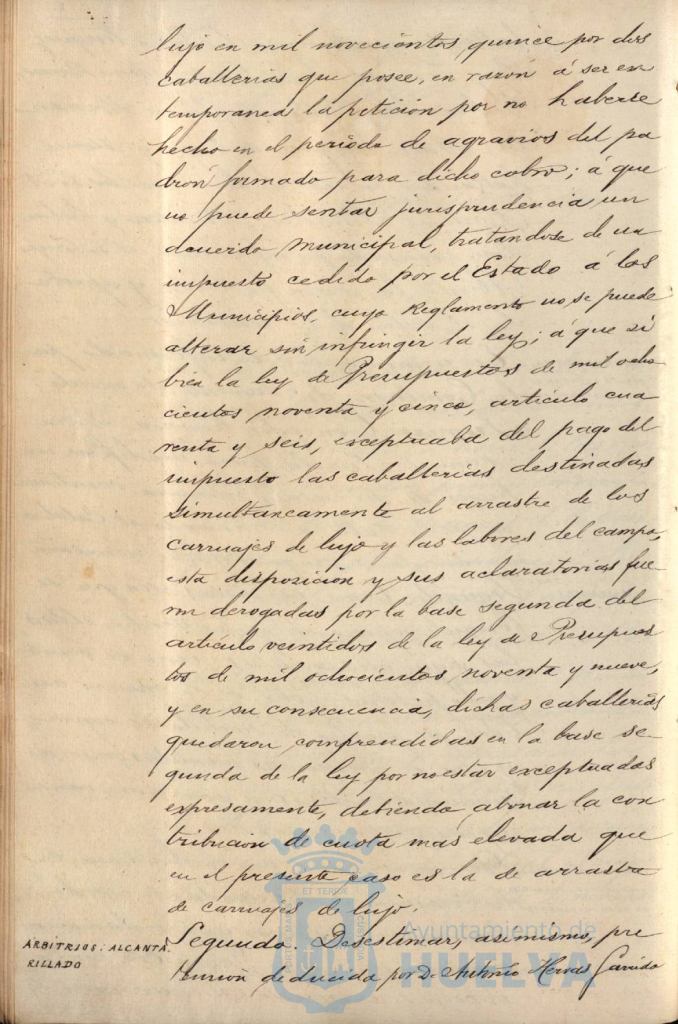 lujo en mil novecientos quince por dos
caballerias que posee, en razón á ser ex
temporanea la peticion por no haberse
hecho en el período de agravios del pa
drón formado para dicho cobro; á que
no puede sentar jurisprudencia un
acuerdo municipal, tratandose de un
impuesto cedido por el Estado á los
Municipios, cuyo Reglamento no se puede
alterar sin infringir la ley; á que si
bien la ley de Presupuestos de mil ocho
cientos noventa y cinco, artículo cua
renta y seis, exceptuaba del pago del
impuesto las caballerias destinadas
simultaneamente al arrastre de los
carruajes de lujo y las labores del campo,
esta disposición y sus aclaratorias fue
ron derogadas por la base segunda del
artículo veintidos de la ley de Presupues
tos de mil ochocientos noventa y nueve,
y en su consecuencia, dichas caballerias
quedaron comprendidas en la base se
gunda de la ley por no estar exceptuadas
expresamente, debiendo abonar la con
tribucion de cuota mas elevada que
en el presente caso es la de arrastre
de carruajes de lujo.
ARBITRIOS: ALCANTA
RILLADO
Segundo. Desestimar, asimismo, pre
tensión deducida por D. Antonio Hervas Garrido
Ayuntamiento de
HUELVA